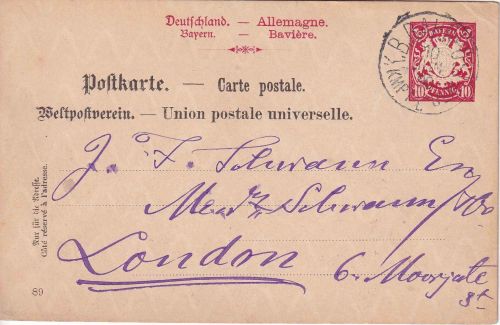 Deutschland. — Allemagne.
Bayern. — Bavière.
BAYERN
10 PFENNIG 10
Postkarte. — Carte postale.
Weltpostverein. — Union postale universelle.
Nur für die Adresse.
Côté réservé à l'adresse.
J. F. Schwann
Schwann
London
6. Moorgate
St
89